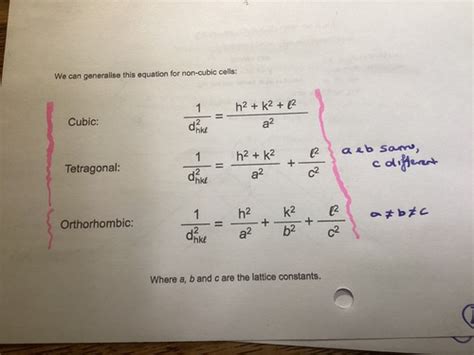 We can generalise this equation for non-cubic cells:
Cubic: 1/d²hkℓ = (h² + k² + ℓ²)/a²
Tetragonal: 1/d²hkℓ = (h² + k²)/a² + ℓ²/c² a & b same,
c different
Orthorhombic: 1/d²hkℓ = h²/a² + k²/b² + ℓ²/c² a ≠ b ≠ c
Where a, b and c are the lattice constants.